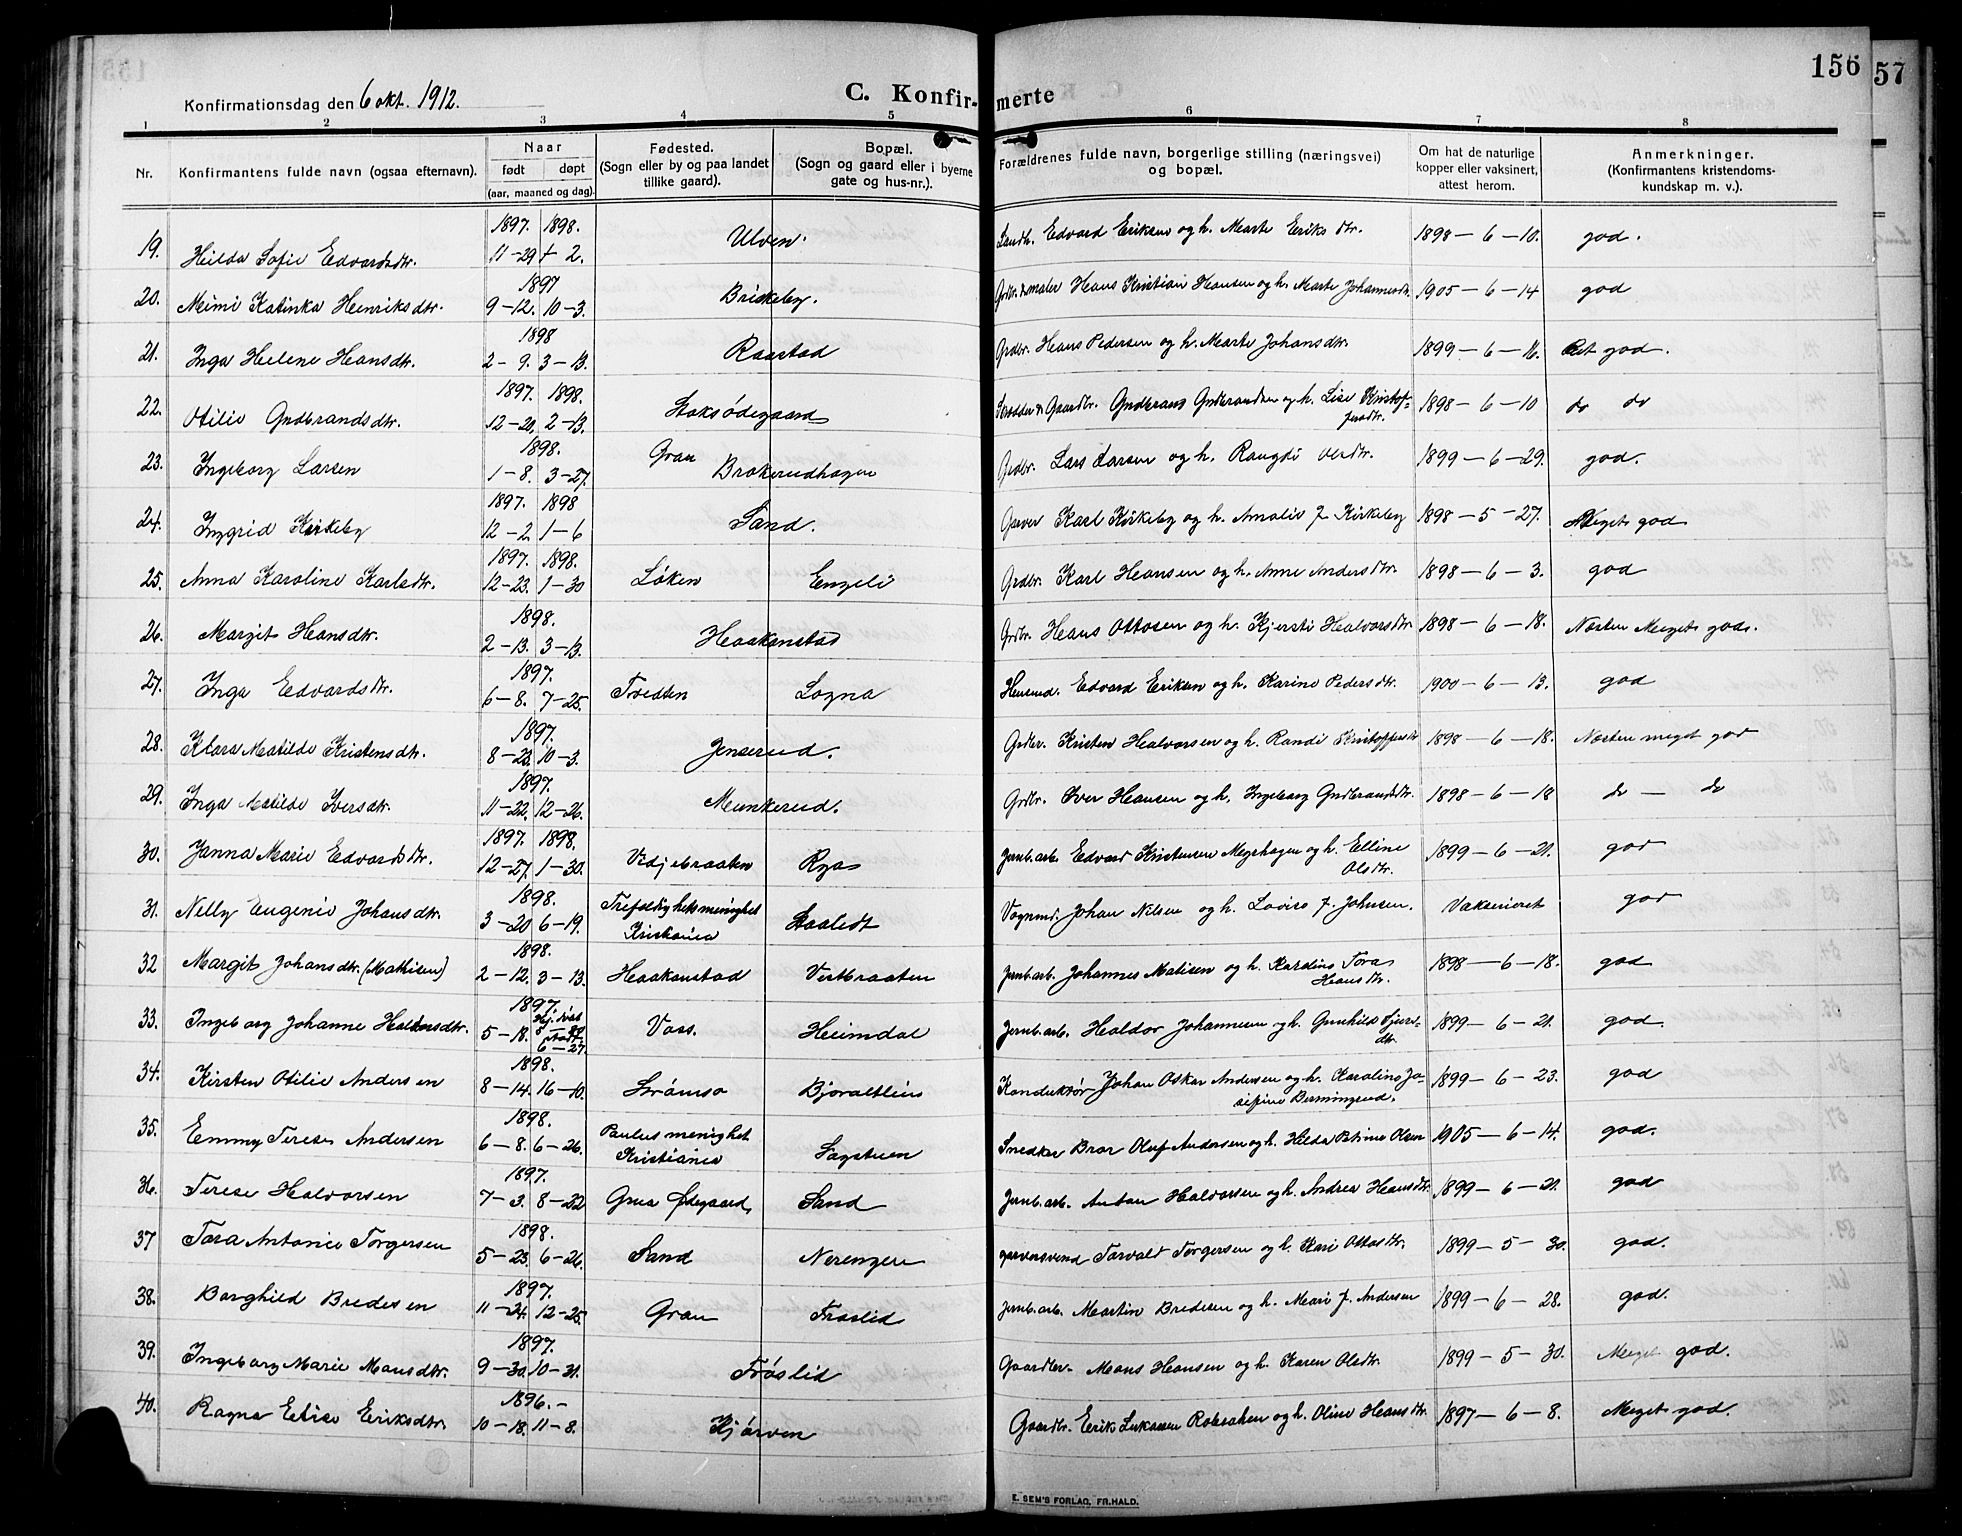 156
57
Konfirmationsdag den 6 okt. 1912.
C. Konfirmerte
1 2 3 4 5 6 7 8
Nr. Konfirmantens fulde navn (ogsaa efternavn). Naar født døpt (aar, maaned og dag). Fødested. (Sogn eller by og paa landet tillike gaard). Bopæl. (Sogn og gaard eller i byerne gate og hus-nr.). Forældrenes fulde navn, borgerlige stilling (næringsvei) og bopæl. Om hat de naturlige kopper eller vaksinert, attest herom. Anmerkninger. (Konfirmantens kristendomskundskap m. v.).
1897. 1898.
19. Hilda Sofie Edvardsdtr. 11-29 1-2. Ulven. Edvard Eriksen og h. Marte Eriksdtr. 1898-6-10. god.
1897
20. Mimi Katinka Henriksdtr. 9-12. 10-3. Briskeby. Hans Kristian Hansen og h. Marte Johannesdtr. 1905-6-14 god
1898
21. Inga Helene Hansdtr. 2-9. 3-13. Raastad Grdbr. Hans Pedersen og h. Marte Johansdtr. 1899-6-16. Ret god.
1897. 1898.
22. Otilie Gudbrandsdtr. 12-20. 2-13. Staksødegaard Gudbrand Gudbrandsen og h. Lise Kristoffersdtr. 1898-6-10 do do
1898.
23. Ingeborg Larsen 1-8. 3-27. Gran Brokerudhagen Grdbr. Lars Larsen og h. Rangdi Olsdtr. 1899-6-29. god.
1897. 1898
24. Ingrid Kirkeby 12-2. 1-6 Sand. Garver Karl Kirkeby og h. Amalie f. Kirkeby 1898-5-27. Meget god
1897. 1898.
25. Anna Karoline Karlsdtr. 12-23. 1-30 Løken Engeli Grdbr. Karl Hansen og h. Anne Andersdtr. 1898-6-3. god
1898.
26. Margit Hansdtr. 2-13. 3-13. Haakenstad Grdbr. Hans Ottosen og h. Kjersti Halvorsdtr. 1898-6-18. Næsten Meget god.
1897.
27. Inga Edvardsdtr. 6-8. 7-25. Tveden Sogna Edvard Eriksen og h. Karine Pedersdtr. 1900-6-13. god
1897.
28. Klara Matilde Kristensdtr. 8-23. 10-3. Jenserud. Grdbr. Kristen Halvorsen og h. Randi Kristoffersdtr. 1898-6-18. Næsten meget god
1897.
29. Inga Matilde Iversdtr. 11-22. 12-26. Munkerud. Grdbr. Iver Hansen og h. Ingeborg Gudbrandsdtr. 1898-6-18 do - do
1897. 1898.
30. Janna Marie Edvardsdtr. 12-27. 1-30. Vidjebraaten Rya Jernb.arb. Edvard Kristensen Myrhagen og h. Elline Olsdtr. 1899-6-21. god
1898.
31. Nelly Eugenie Johansdtr. 3-20 6-19. Trefoldighetsmenighet Kristiania Staaledt Vognmd. Johan Nilsen og h. Lovise f. Johnsen. Vaksineret god
1898.
32 Margit Johansdtr. (Mathisen) 2-12. 3-13. Haakenstad Vestbraaten Jernb.arb. Johannes Matisen og h. Kardine Tora Hansdtr. 1898-6-18. god
1897.
33. Ingeborg Johanne 5-18. Hj. døbt 6-27. Voss. Heimdal Jernb.arb. Haldor Johannesen og h. Gunhild 1899-6-21. god.
1898.
34. Kirsten Otilie Andersen 8-14. 16-10. Strømsø Konduktør Johan Oskar Andersen og h. Karoline Josefine 1899-6-23. god
1898.
35. Emmy Terese Andersen 6-8. 6-26. Paulus menighet Kristiania Sagstuen Snedker Bror Oluf Andersen og h. Hilda Petrine Olsen 1905-6-14. god.
1897.
36. Terese Halvorsen 7-3. 8-22 Grua Ødegaard, Sand Jernb.arb. Anton Halvorsen og h. Andrea Hansdtr. 1899-6-21. god
1898.
37 Tora Antonie Torgersen 5-23. 6-26. Sand Nerengen garversvend Torvald Torgersen og h. Kari Ottosdtr. 1899-5-30. god.
1897.
38. Borghild Bredesen 11-24. 12-25. Gran Frøslid Jernb.arb. Martin Bredesen og h. Mari f. Andersen 1899-6-28. god.
1897.
39. Ingeborg Marie Monsdtr. 9-30. 10-31. Frøslid Gaardbr. Mons Hansen og h. Karen Olsdtr. 1899-5-30. Meget god.
1896.-
40. Ragna Elise Eriksdtr. 10-18. 11-8. Kjørven Gaardbr. Erik Lukassen og h. Oline Hansdtr. 1897-6-8. Meget god.
E. SEM'S FORLAG, FR.HALD.